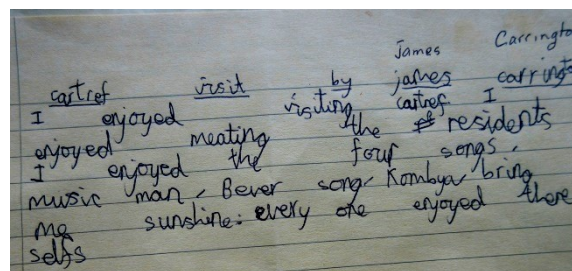 James Carringto
cartref visit by james carringt
I enjoyed visiting cartref I
enjoyed meating the residents
I enjoyed the four songs,
music man, Bever song, Kombya, bring
me sunshine. every one enjoyed there
selfs